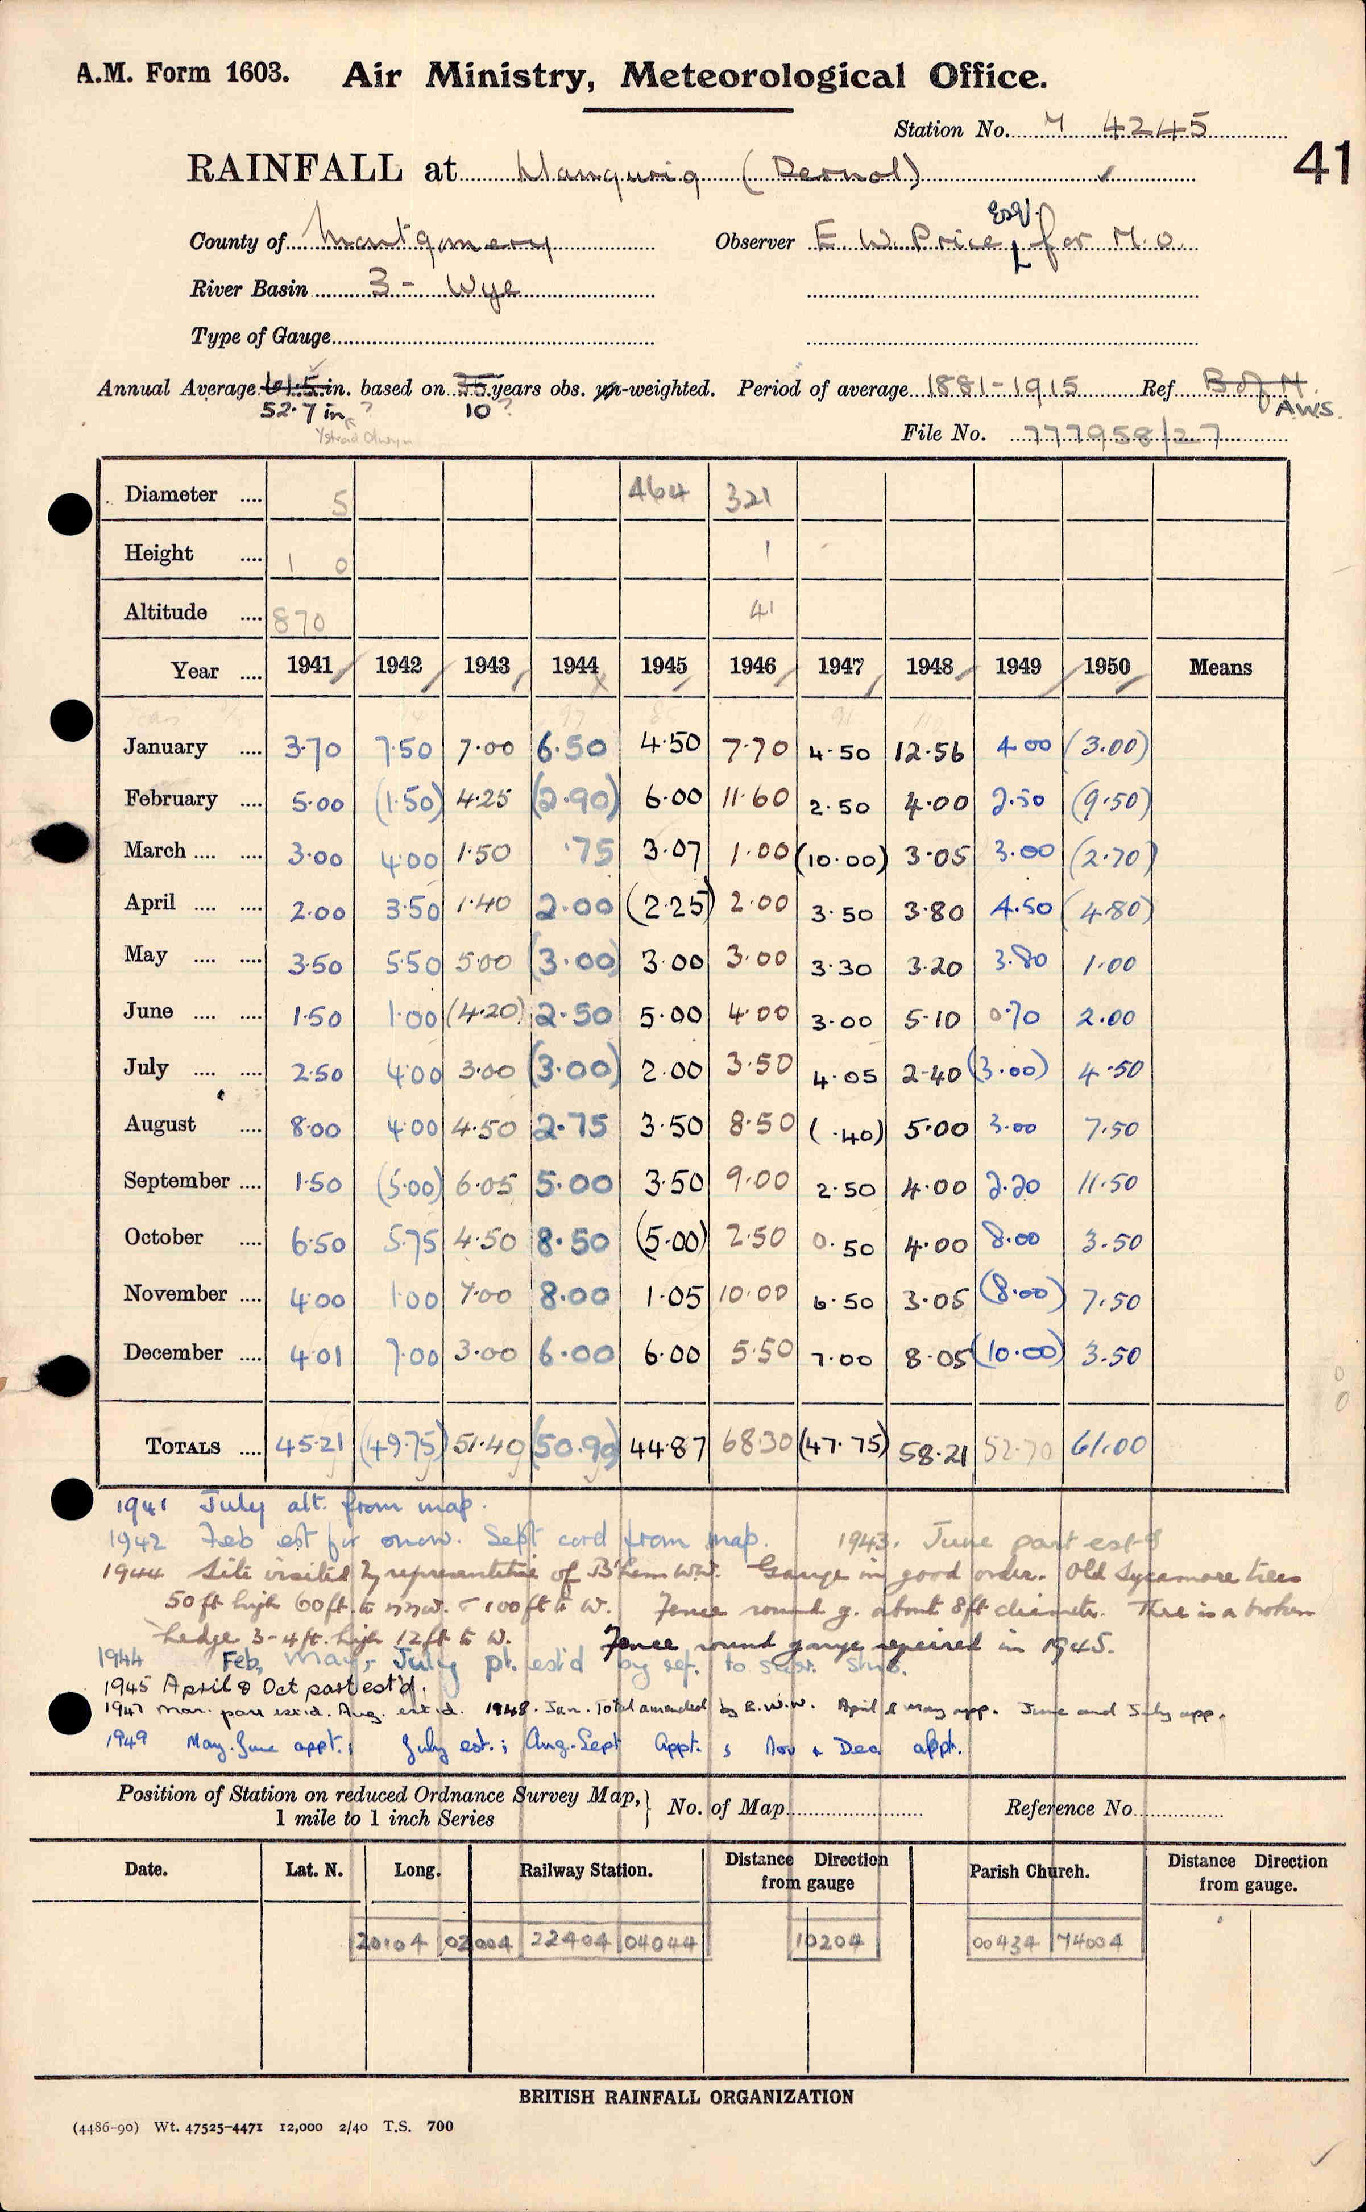 A.M. Form 1603. Air Ministry, Meteorological Office.
Station No. M 4245
41
RAINFALL at Llangurig (Dernol) ✓
County of Montgomery Observer E. W. Price, Esq. for M.O.
River Basin 3 - Wye
Type of Gauge
Annual Average 61.5 in. based on 35 years obs. un-weighted. Period of average 1881-1915 Ref B of H.
52.7 in ? 10 ? A.W.S.
File No. 777958/27
Diameter .... 5 464 321
Height .... 1 0 1
Altitude .... 870 41
Year .... 1941 1942 1943 1944 1945 1946 1947 1948 1949 1950 Means
January .... 3.70 7.50 7.00 6.50 4.50 7.70 4.50 12.56 4.00 (3.00)
February .... 5.00 (1.50) 4.25 (2.90) 6.00 11.60 2.50 4.00 2.50 (9.50)
March .... .... 3.00 4.00 1.50 .75 3.07 1.00 (10.00) 3.05 3.00 (2.70)
April .... .... 2.00 3.50 1.40 2.00 (2.25) 2.00 3.50 3.80 4.50 (4.80)
May .... .... 3.50 5.50 5.00 (3.00) 3.00 3.00 3.30 3.20 3.80 1.00
June .... .... 1.50 1.00 (4.20) 2.50 5.00 4.00 3.00 5.10 0.70 2.00
July .... .... 2.50 4.00 3.00 (3.00) 2.00 3.50 4.05 2.40 (3.00) 4.50
August .... 8.00 4.00 4.50 2.75 3.50 8.50 (.40) 5.00 3.00 7.50
September .... 1.50 (5.00) 6.05 5.00 3.50 9.00 2.50 4.00 2.20 11.50
October .... 6.50 5.75 4.50 8.50 (5.00) 2.50 0.50 4.00 8.00 3.50
November .... 4.00 1.00 7.00 8.00 1.05 10.00 6.50 3.05 (8.00) 7.50
December .... 4.01 7.00 3.00 6.00 6.00 5.50 7.00 8.05 (10.00) 3.50
TOTALS .... 45.21 (49.75) 51.40 (50.90) 44.87 68.30 (47.75) 58.21 52.70 61.00
1941 July alt. from map.
1942 Feb est for snow. Sept cord from map. 1943. June part est'd
1944 Site visited by representative of B'ham W.W. Gauge in good order. Old Sycamore trees
50 ft high 60 ft. to NNW. & 100 ft to W. Fence round g. about 8 ft diameter. There is a broken
hedge 3-4 ft. high 12 ft to W. Fence round gauge repaired in 1945.
1944 Feb, May, July pt. est'd by ref. to surr. stns.
1945 April & Oct part est'd.
1947 Mar. part est.d. Aug. est.d. 1948. Jan. Total amended by E.W.W. April & May app. June and July app.
1949 May. June appt.; July est.; Aug. Sept Appt.; Nov & Dec appt.
Position of Station on reduced Ordnance Survey Map, } No. of Map Reference No.
1 mile to 1 inch Series
Date. Lat. N. Long. Railway Station. Distance Direction from gauge Parish Church. Distance Direction from gauge.
20104 02004 22404 04044 10204 00434 74004
BRITISH RAINFALL ORGANIZATION
(4486-90) Wt. 47525-4471 12,000 2/40 T.S. 700